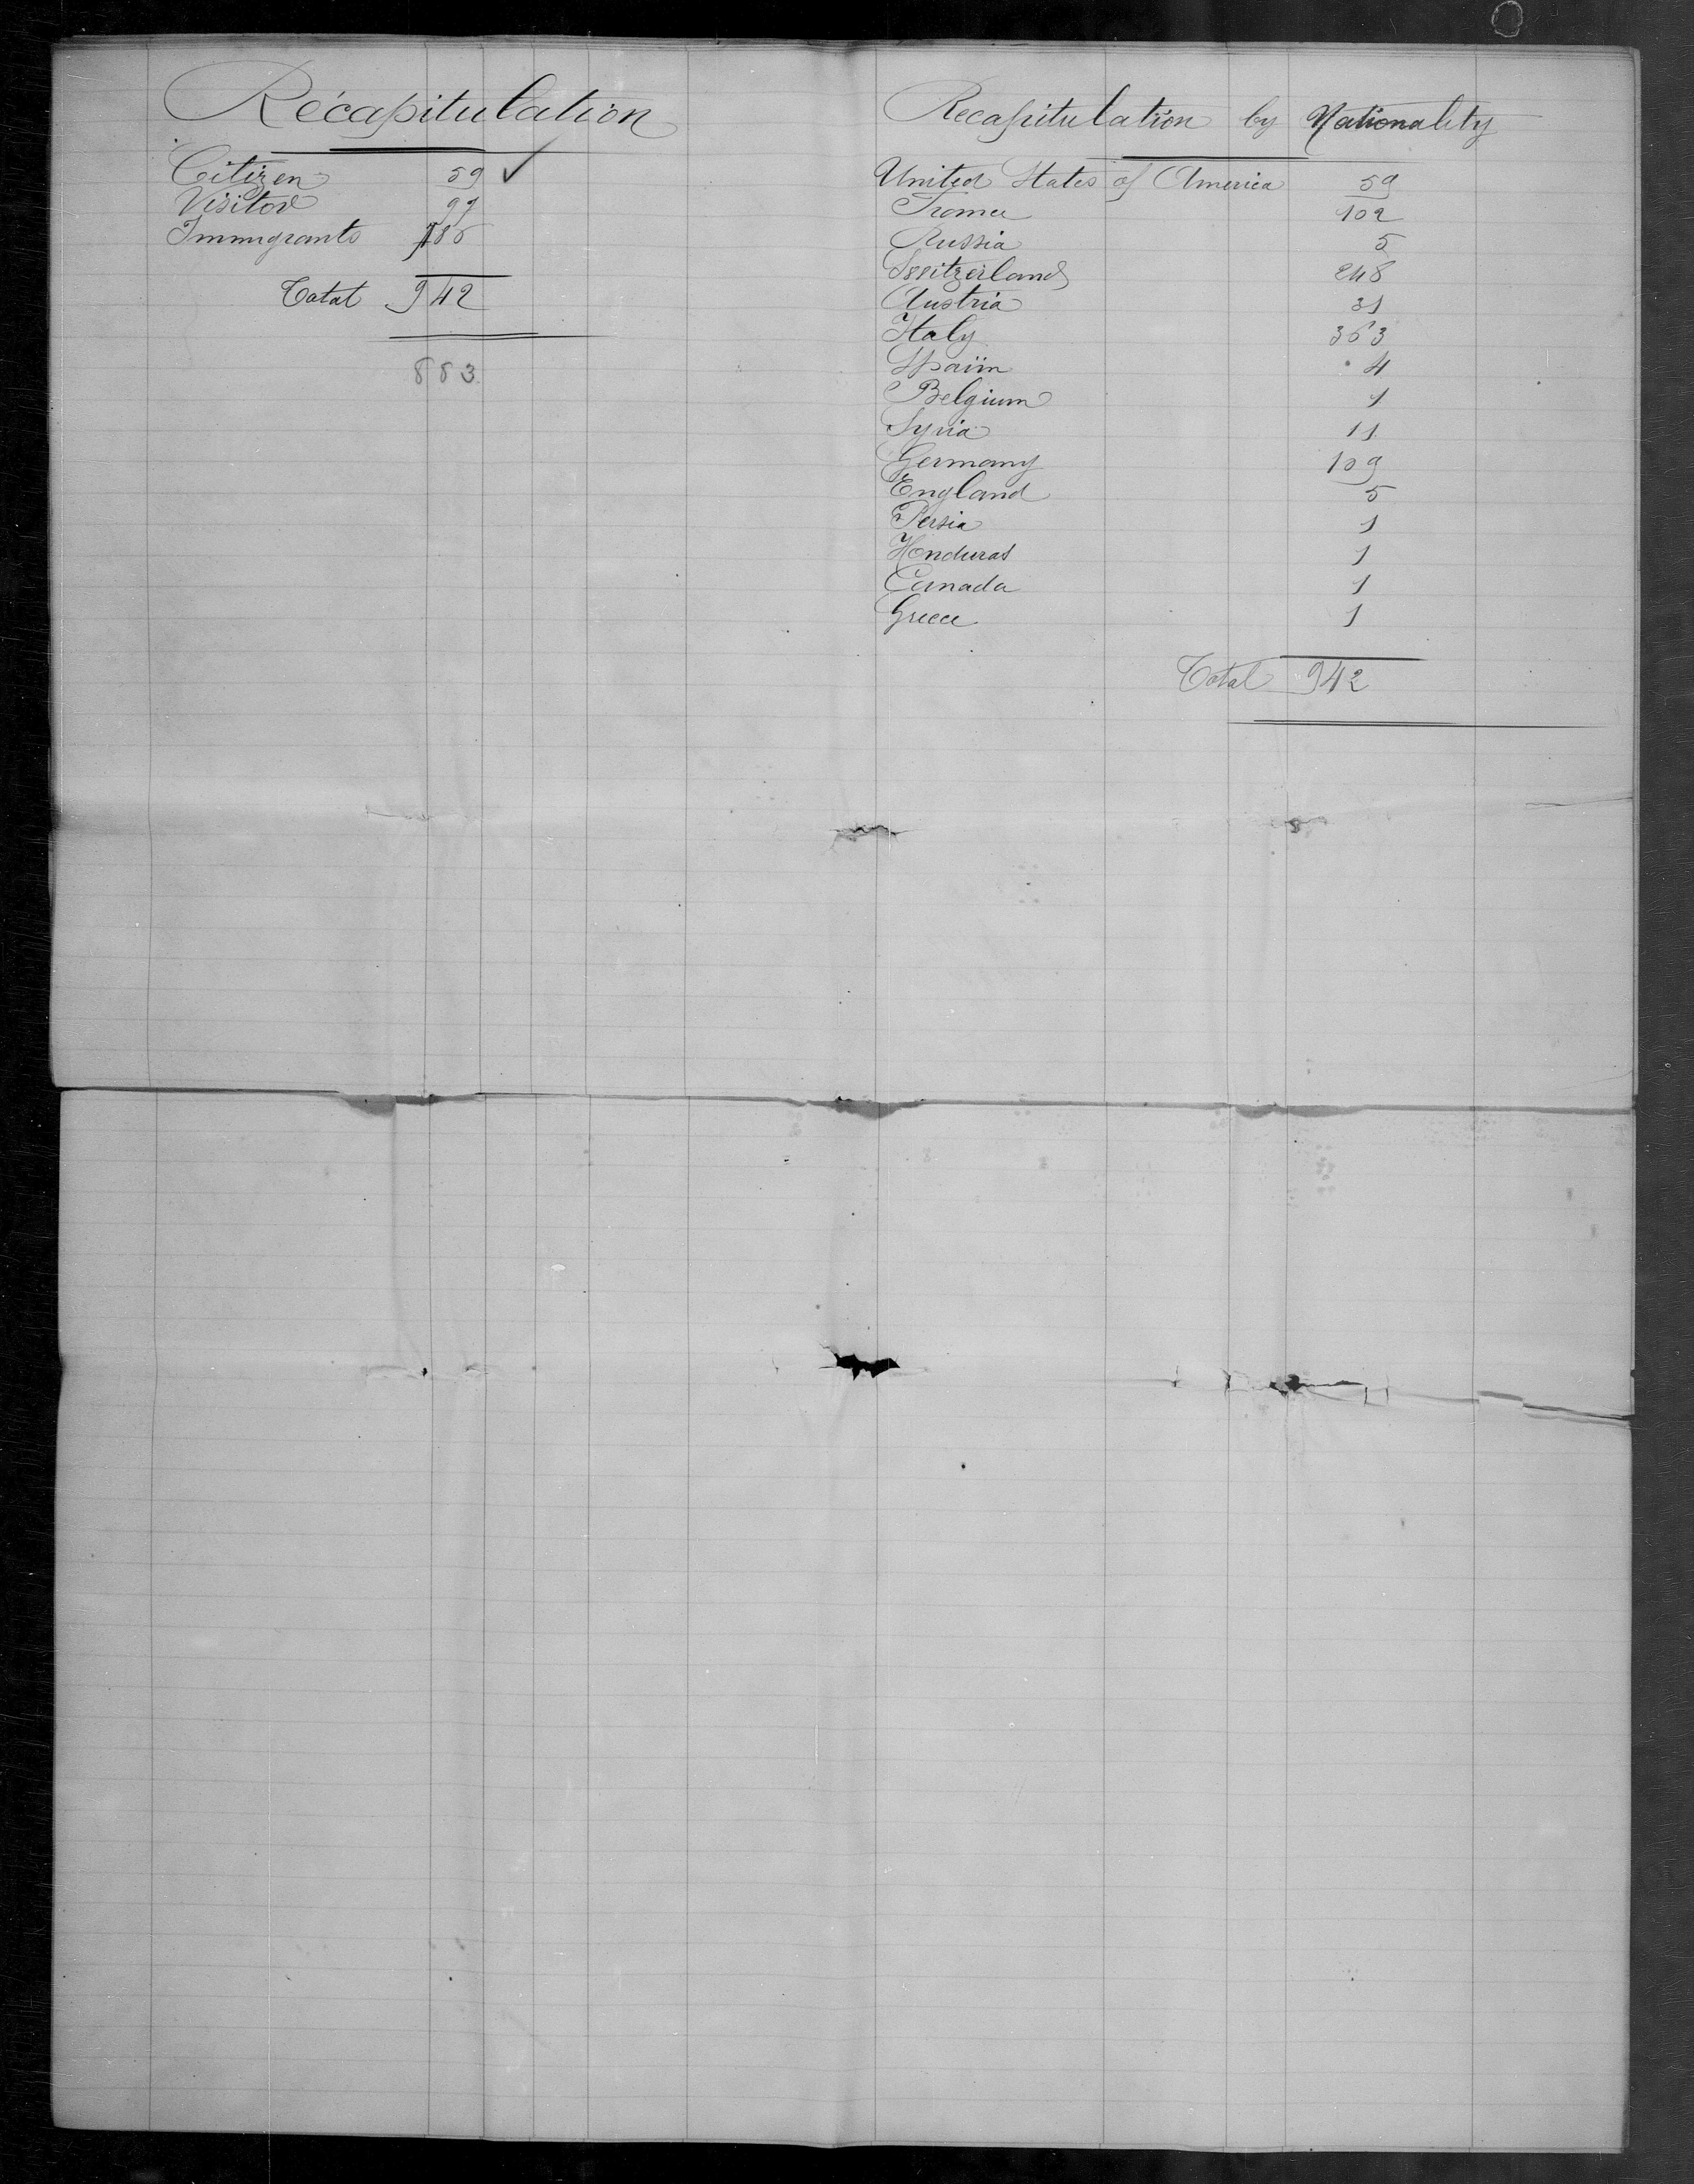 Récapitulation
Citizen 59 ✓
Visitor 97
Immigrants 786
Total 942
883
Recapitulation by Nationality
United States of America 59
France 102
Russia 5
Switzerland 248
Austria 31
Italy 363
Spain 4
Belgium 1
Syria 11
Germany 109
England 5
Persia 1
Honduras 1
Canada 1
Greece 1
Total 942